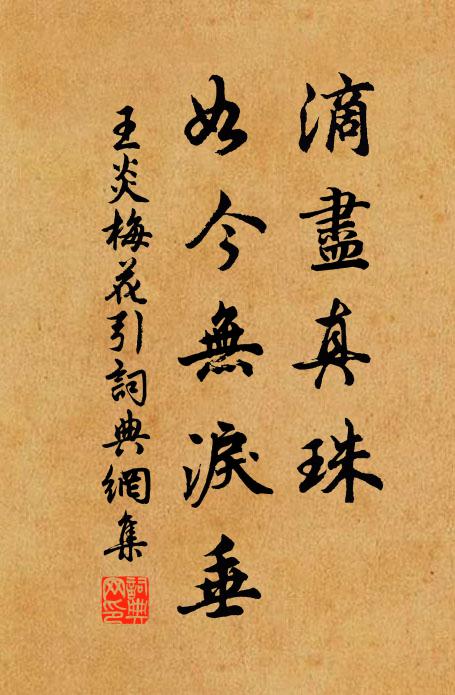 滴盡真珠
如今無淚垂
王炎梅花引詞典網集
詞典网印